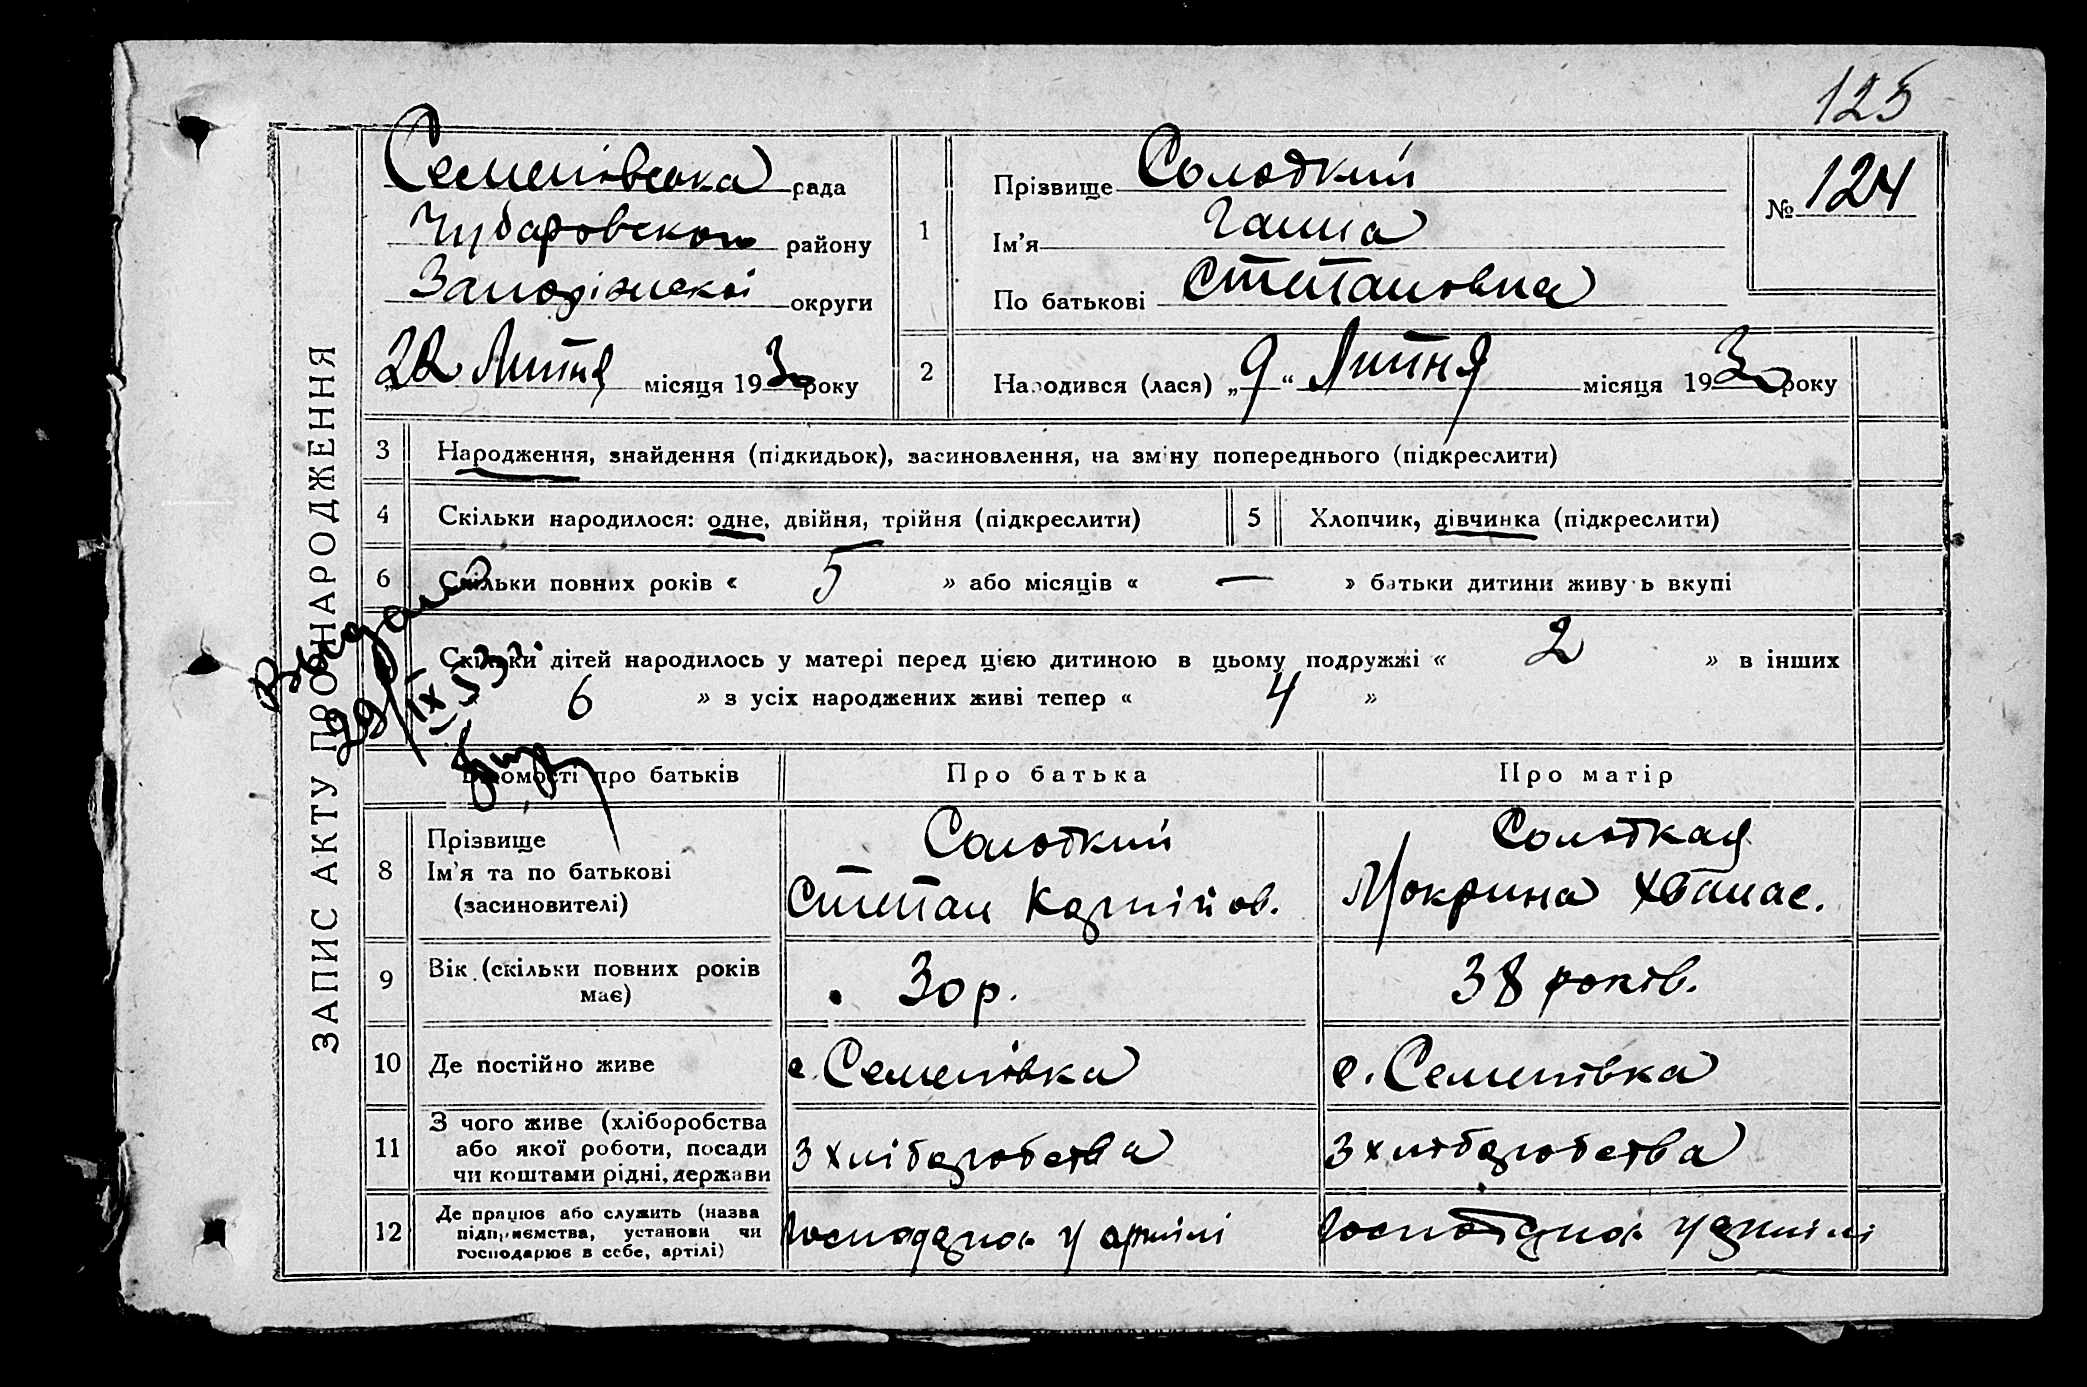 125
ЗАПИС АКТУ ПРО НАРОДЖЕННЯ
Семенівська рада
Чубаровского району
Запоріжскої округи
22 Липня місяця 1930 року
1
Прізвище Солодкий
Ім'я Ганна
По батькові Степановна
№ 124
2
Народився (лася) „9“ Липня місяця 1930 року
3 Народження, знайдення (підкидьок), засиновлення, на зміну попереднього (підкреслити)
4 Скільки народилося: одне, двійня, трійня (підкреслити)
5 Хлопчик, дівчинка (підкреслити)
6 Скільки повних років « 5 » або місяців « — » батьки дитини живуть вкупі
Скільки дітей народилось у матері перед цією дитиною в цьому подружжі « 2 » в інших
6 » з усіх народжених живі тепер « 4 »
29/IX 53
Відомості про батьків
Про батька
Про матір
8
Прізвище
Ім'я та по батькові
(засиновителі)
Солодкий
Степан Карпійов.
Солодкая
Мокрина Хванас.
9
Вік (скільки повних років
має)
30 р.
38 років.
10
Де постійно живе
с. Семенівка
с. Семенівка
11
З чого живе (хліборобства
або якої роботи, посади
чи коштами рідні, держави
З хліборобства
З хліборобства
12
Де працює або служить (назва
підприємства, установи чи
господарює в себе, артілі)
Господарює у артілі
Господарює у артілі